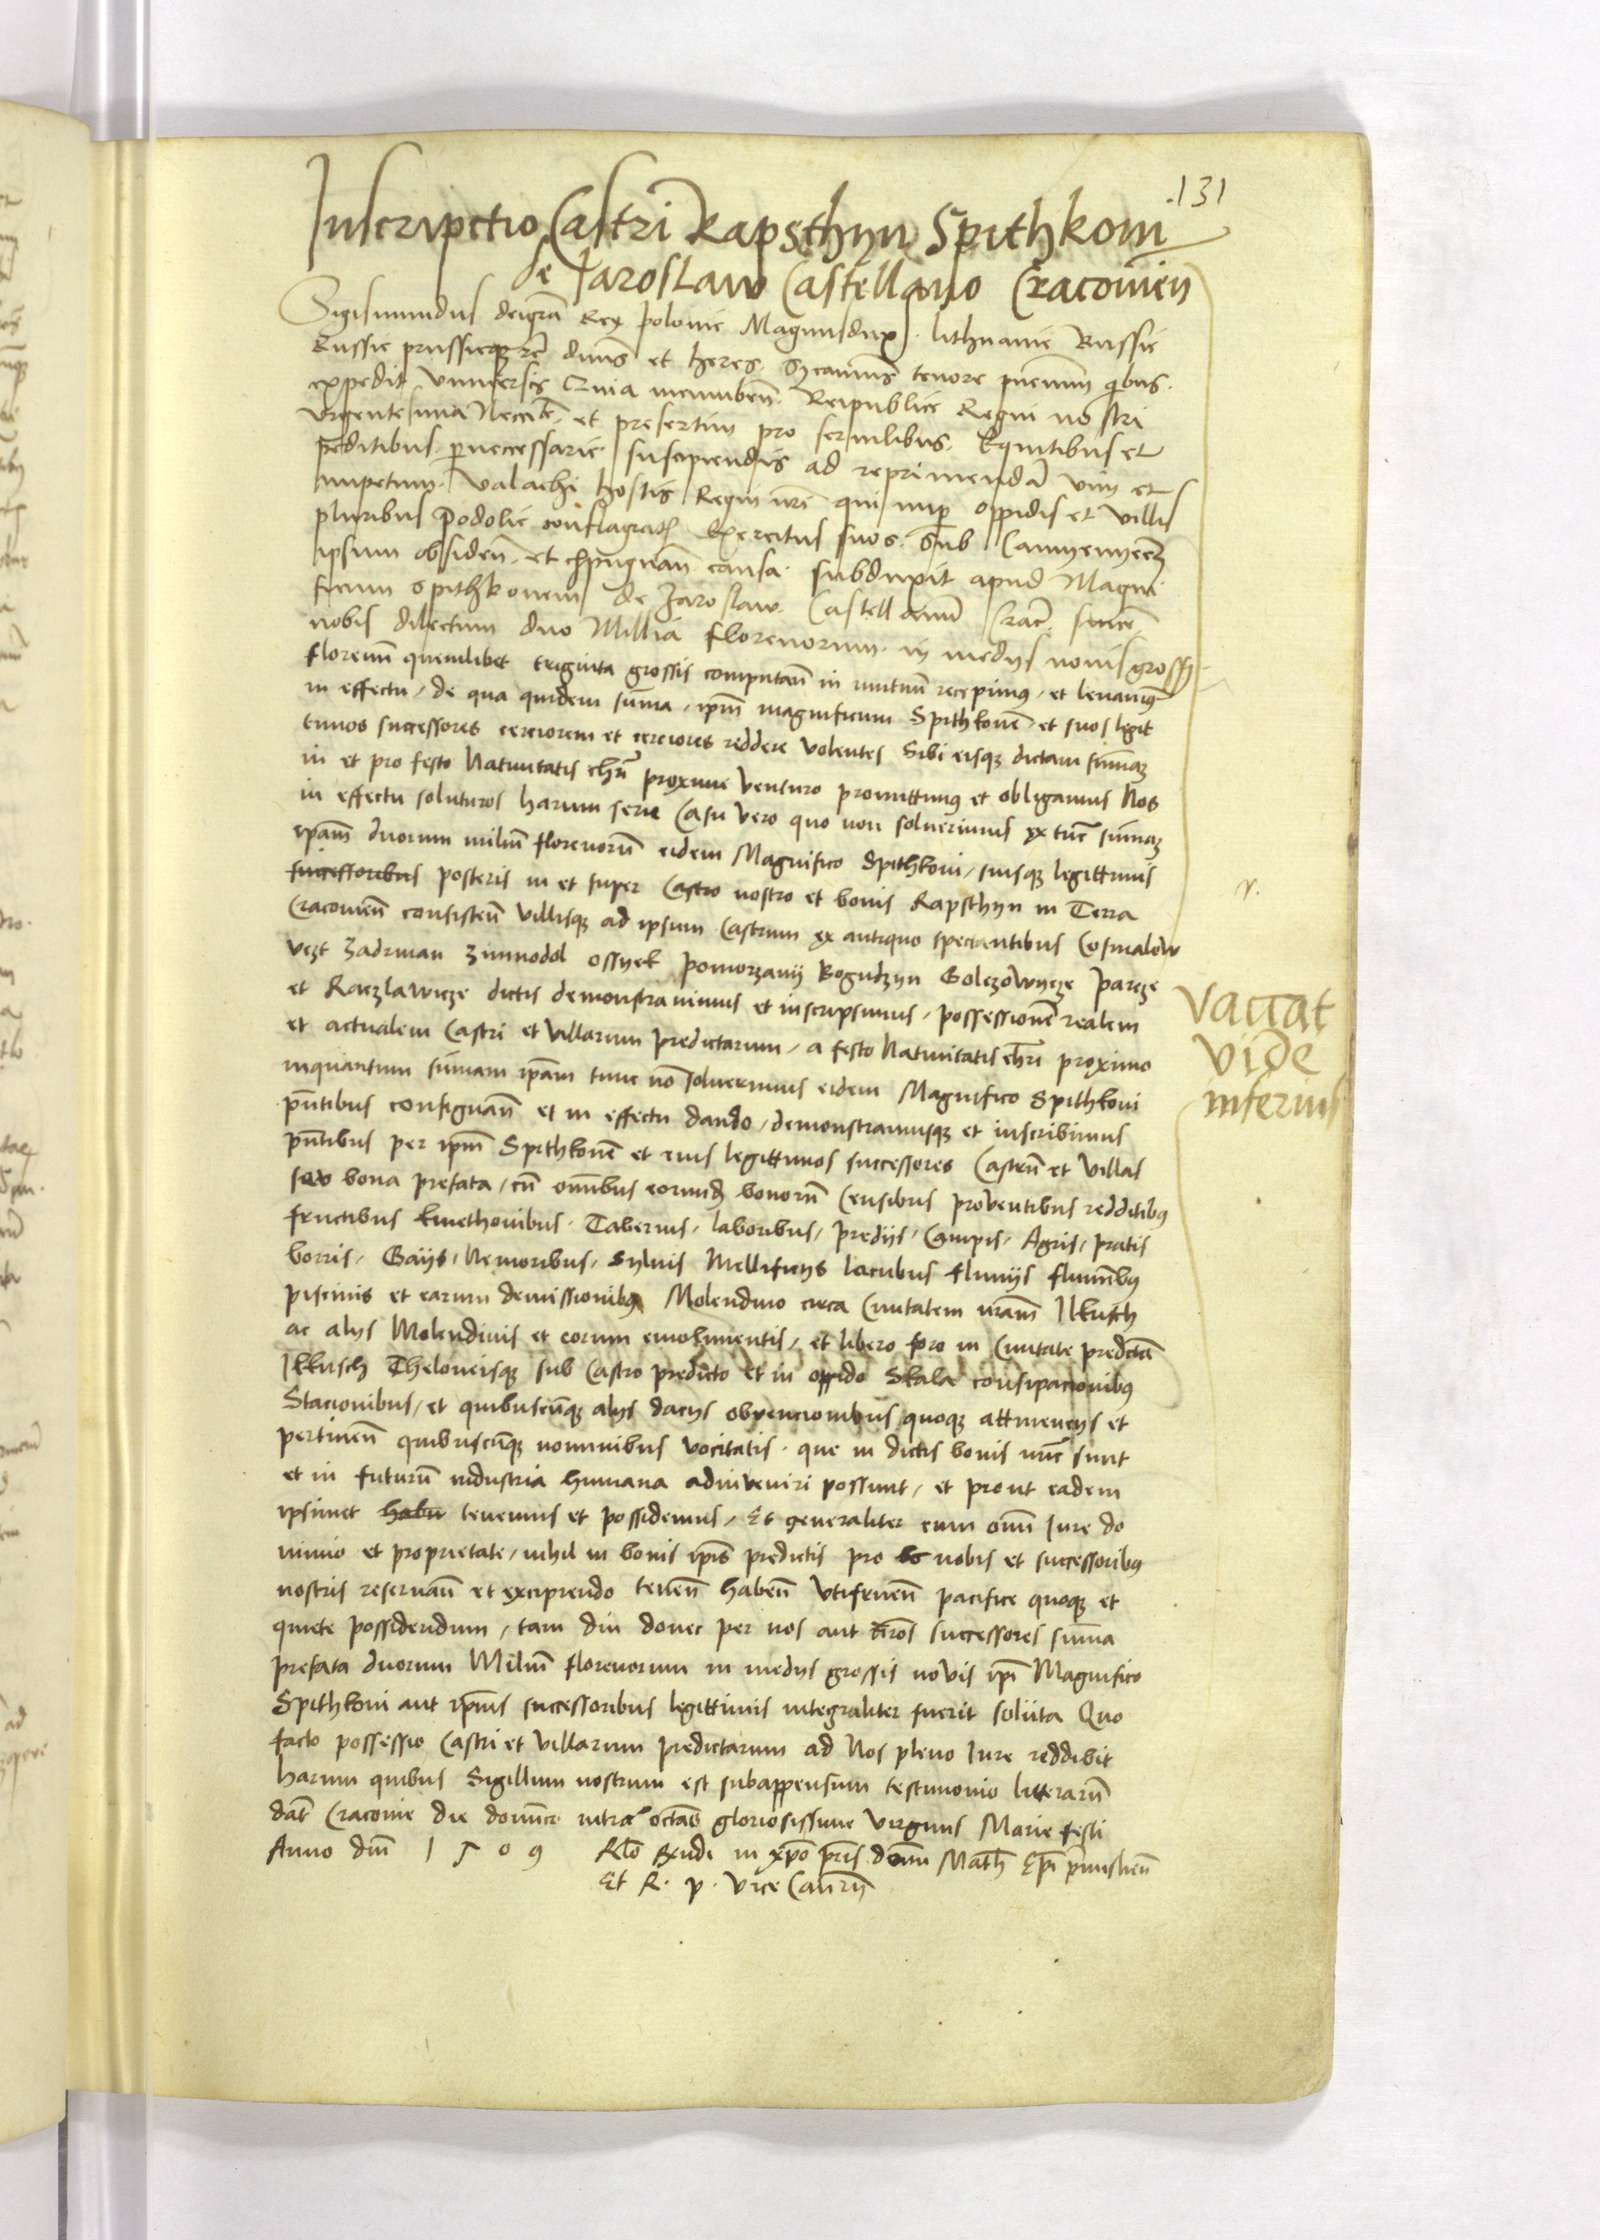 .131
Inscripctio Castri Rapsthyn Spithkoni
de Jaroslaw Castellano Cracovien
Sigismundus dei gra Rex polonie Magnus dux lithuanie Russie
Russie prussieque etc dnus et heres. Significamus tenore pntium quibus
expedit Universis Quia incumben Reipublice Regni nostri
urgentesima Neccte et presertim pro servilibus Equitibus et
peditibus pernecessarie suscipiendis ad reprimenda vim et
impetum Valachi hostis Regni nri qui nup oppidis et villis
pluribus Podolie conflagratis Exercitus suos sub
ipsum obsiden et expugnan causa subduxit apud Magni
ficum Spithkonem de Jaroslaw Castellanu Crac
nobis dilectum duo Millia florenorum in medys novis grossis
florenu quemlibet triginta grossis computan in mutuu recepimus, et levavimus
in effectu, de qua quidem suma, ipm magnificum Spithkone et suos legit
timos successores cerciorem et cerciores reddere volentes Sibi eisque dictam sumam
in et pro festo Nativitatis chri proxime venturo promittimus et obligamus Nos
in effectu soluturos harum serie Casu vero quo non solverimus ex tuc sumam
ipam duorum miliu florenoru eidem Magnifico Spithkoni, suisque legittimis
successoribus posteris in et super Castro nostro et bonis Rapsthyn in Terra
Cracovien consisten villisque ad ipsum Castrum ex antiquo spectantibus Cosmalow
vezt Zadrman Zimnodol Ossyek pomorzany Bogudzyn Golczowycze parcze
et Raczlawicze dictis demonstravimus et inscripsimus, possessione realem
et actualem Castri et villarum predictarum, a festo Nativitatis chri proximo
inquantum sumam ipam tunc no solverimus eidem Magnifico Spithkoni
pntibus consignan et in effectu dando, demonstramusque et inscribimus
pntibus per ipm Spithkone et eius legittimos successores Castru et villas
seu bona prefata, cu omnibus eorundem bonoru Censibus proventibus redditibus
fructibus kmethonibus Tabernis, laboribus, predys, Campis, Agris, pratis
borris, Gays, Nemoribus, Sylvis Mellificys lacubus fluviis fluminibus
piscinis et earum demissionibus Molendino circa Civitatem nram Ilkusch
ac alys Molendinis et eorum emolumentis, et libero foro in Civitate predicta
Ilkusch Theloneisque sub Castro predicto et in oppido Skala consipacionibus
Stacionibus, et quibuscunque alys dacys obvencionibus quoque attinencys et
pertinen quibuscunque nominibus vocitatis que in dictis bonis nunc sunt
et in futuru industria humana adinveniri possunt, et prout eadem
ipsimet habu tenemus et possidemus, Et generaliter cum omi Iure do
minio et proprietate, nihil in bonis ipis predictis pro nobis et successoribus
nostris reservan et excipiendo tenen haben utifruen pacifice quoque et
quiete possidendum, tam diu donec per nos aut nros successores suma
prefata duorum Miliu florenorum in medys grossis novis ipi Magnifico
Spithkoni aut ipius successoribus legittimis integraliter fuerit soluta Quo
facto possessio Castri et villarum predictarum ad Nos pleno Iure reddibit
harum quibus Sigillum nostrum est subappensum testimonio litteraru
dat Cracovie die dominico intra octavas gloriosissime virginis Marie festi
Anno dni 1509 Rlo Rxndi in xpo pris domini Math Epi premislien
Et R. p. vice Can
vaccat
vide
inferius